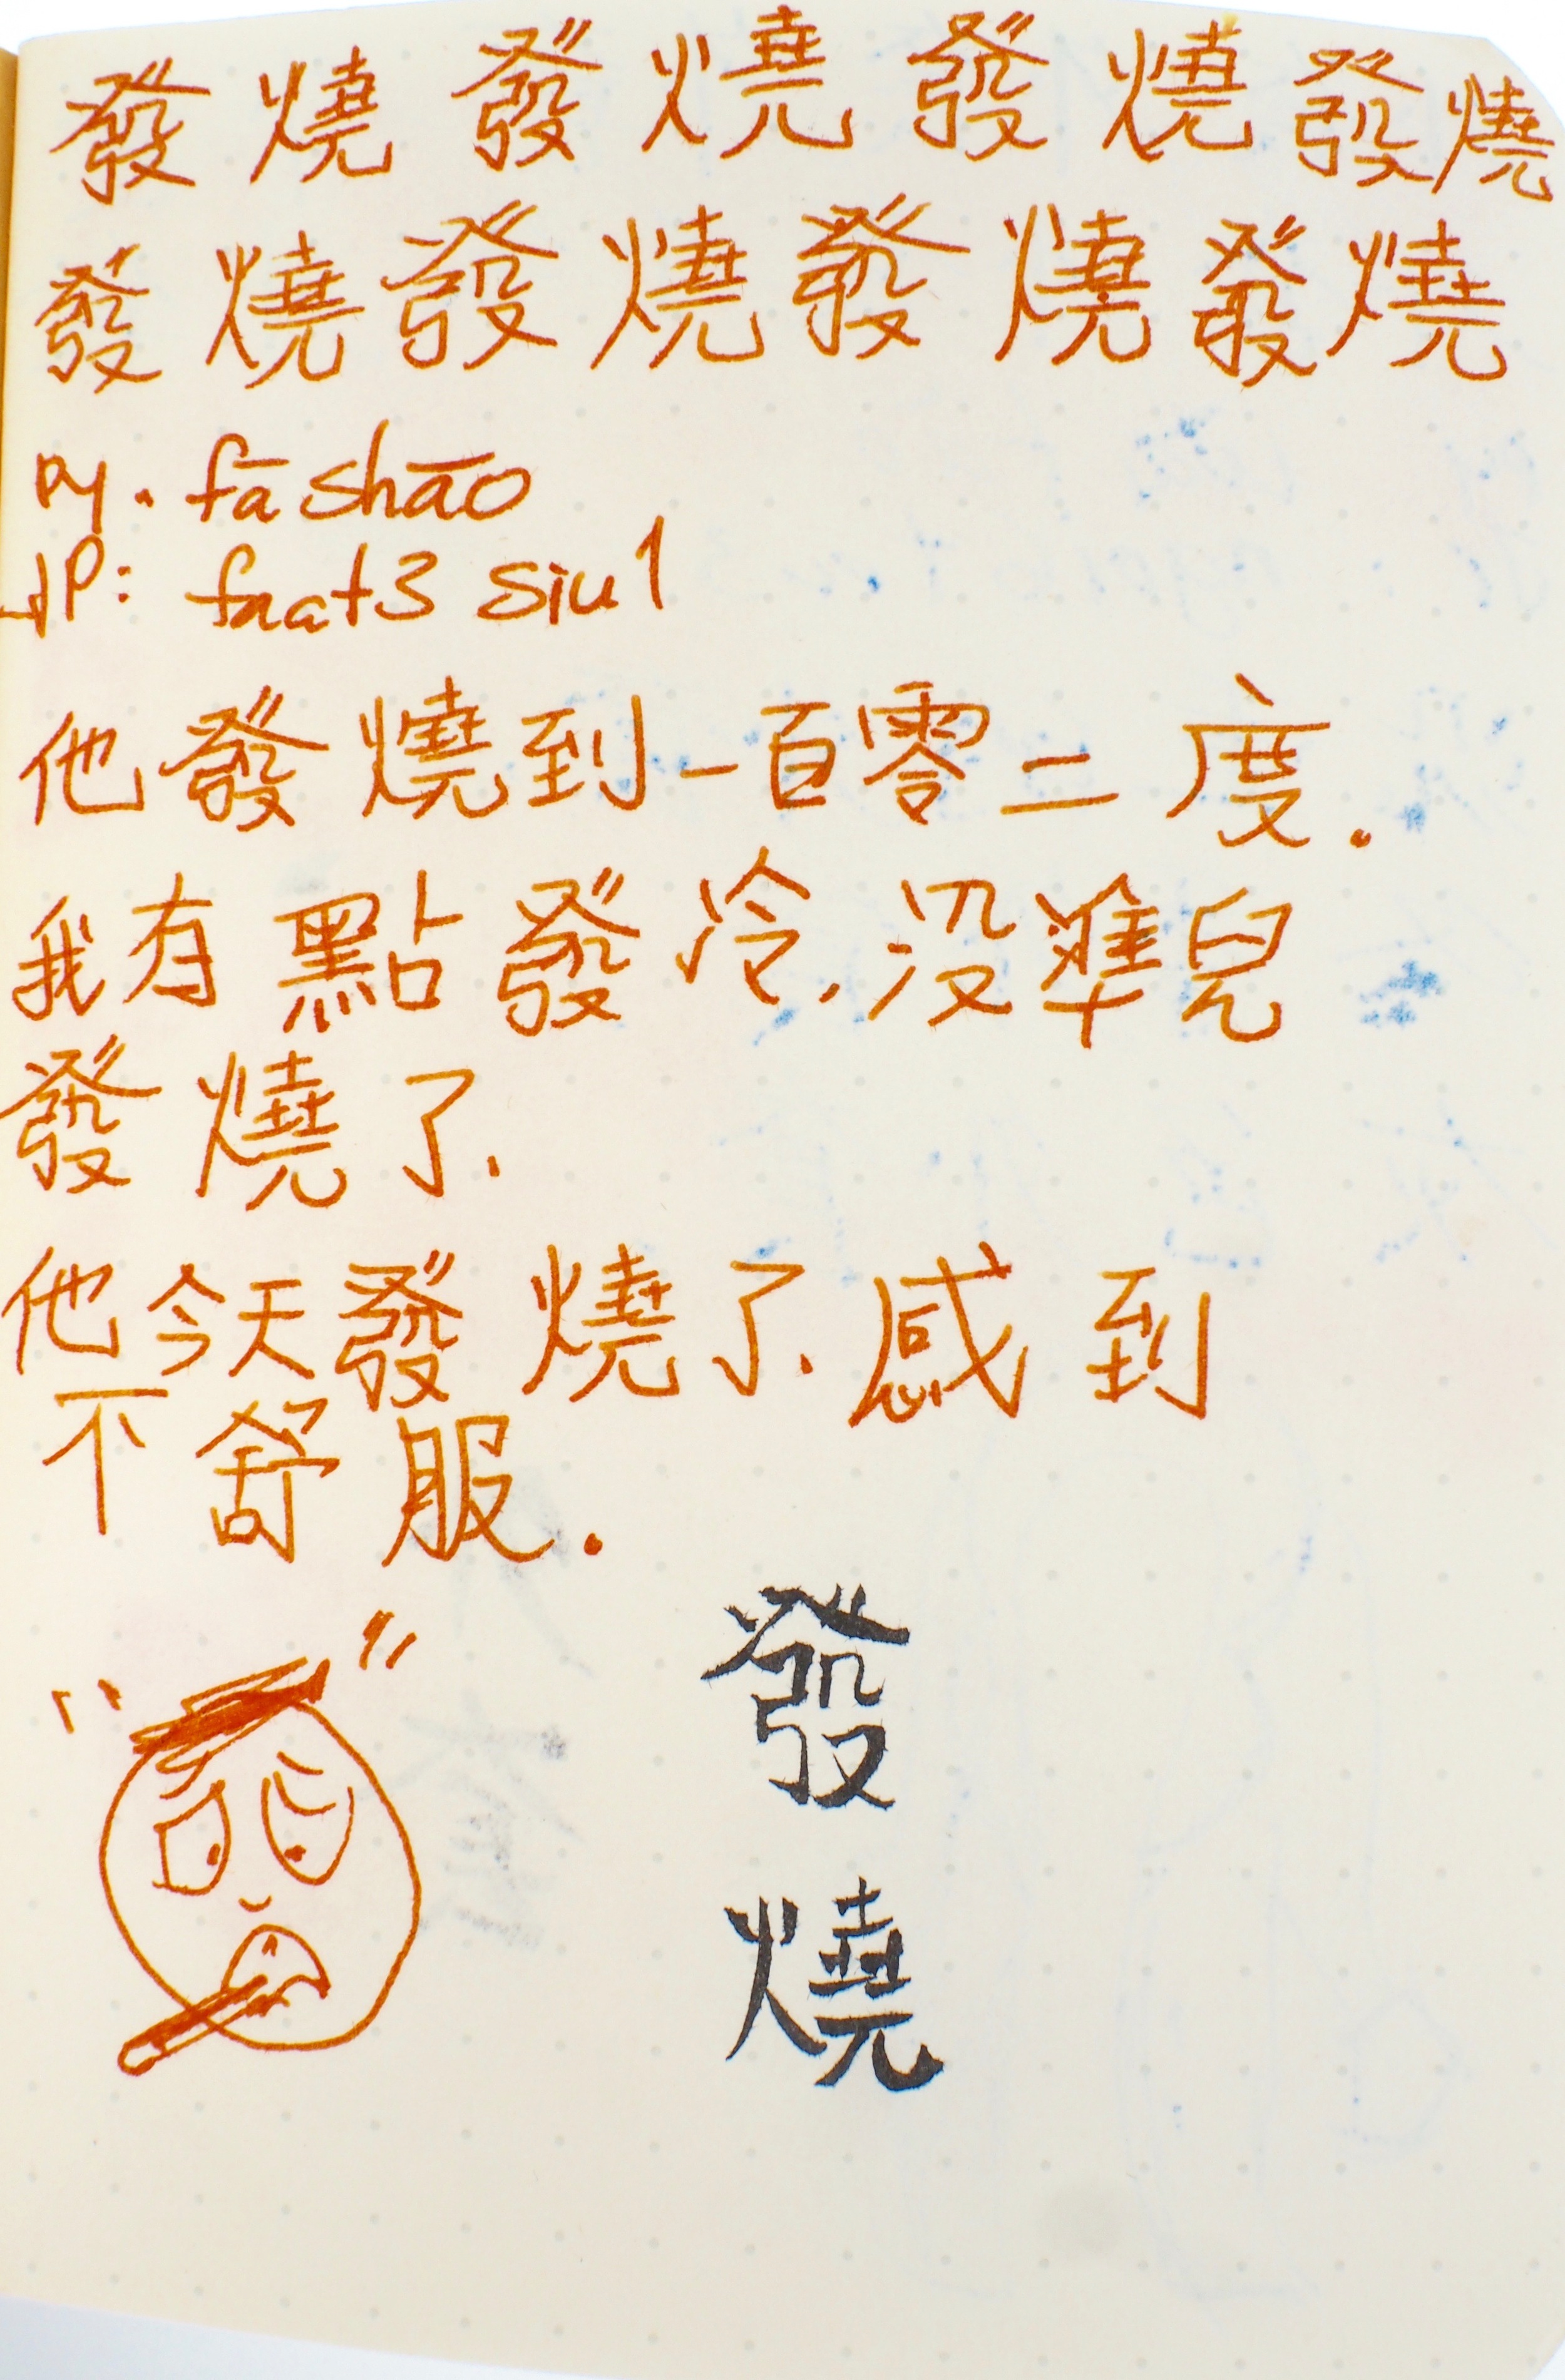 發燒發燒發燒發燒
發燒發燒發燒發燒
py. fā shāo
JP: faat3 siu1
他發燒到一百零二度.
我有點發冷,没準兒
發燒了.
他今天發燒了.感到
不舒服.
發
燒